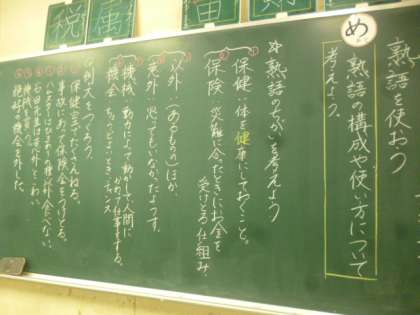 熟語を使おう
め
熟語の構成や使い方について
考えよう。
☆熟語のちがいを考えよう
① 保健：体を健康にしておくこと。
② 保険：災難に合ったときにお金を
受けとる仕組み
① 以外：（あるもの）のほか。
② 意外：思ってもいなかったようす。
① 機械：動力によって動かして人間に
かわって仕事をする。
② 機会：ちょうどよいとき・チャンス
例文をつくろう。
保健室でたくさんねる。
事故にあって保険金をうけとる。
ハムスターはひまわりの種以外食べない。
石田先生は意外とこわい
機械を
機会を
税
属